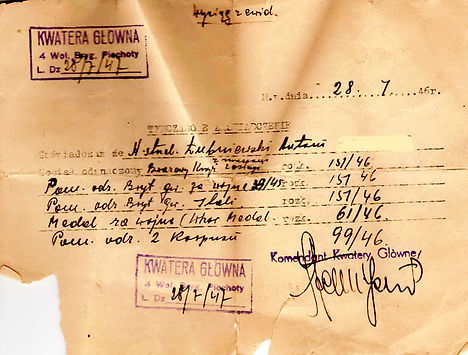 KWATERA GŁÓWNA
4 Woł. Bryg. Piechoty
L. Dz 28/7/47
M.p.dnia 28. 7 .46r.
TYMCZASOWE ZAŚWIADCZENIE
Zaświadczam że st. uł. Łubniewski Antoni
Został odznaczony Brązowy Krzyż Zasługi z mieczami rozk. 151/46
Pam. odz. Bryt. gw. za wojnę 39/45 rozk. 151 46
Pam. odz. Bryt. Gw. Italii rozk. 151/46
Medal za wojnę / War Medal . rozk. 61/46
Pam. odz. 2 Korpusu 99/46.
Komendant Kwatery Głównej
KWATERA GŁÓWNA
4 Woł. Bryg. Piechoty
L. Dz 28/7/47